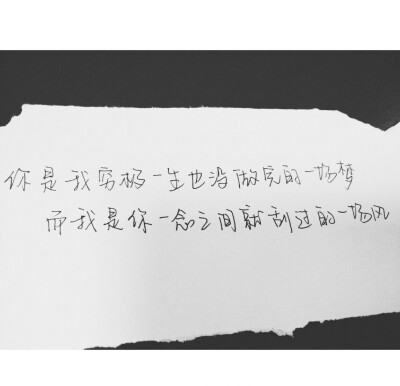 你是我穷极一生也没做完的一场梦
而我是你一念之间就刮过的一场风